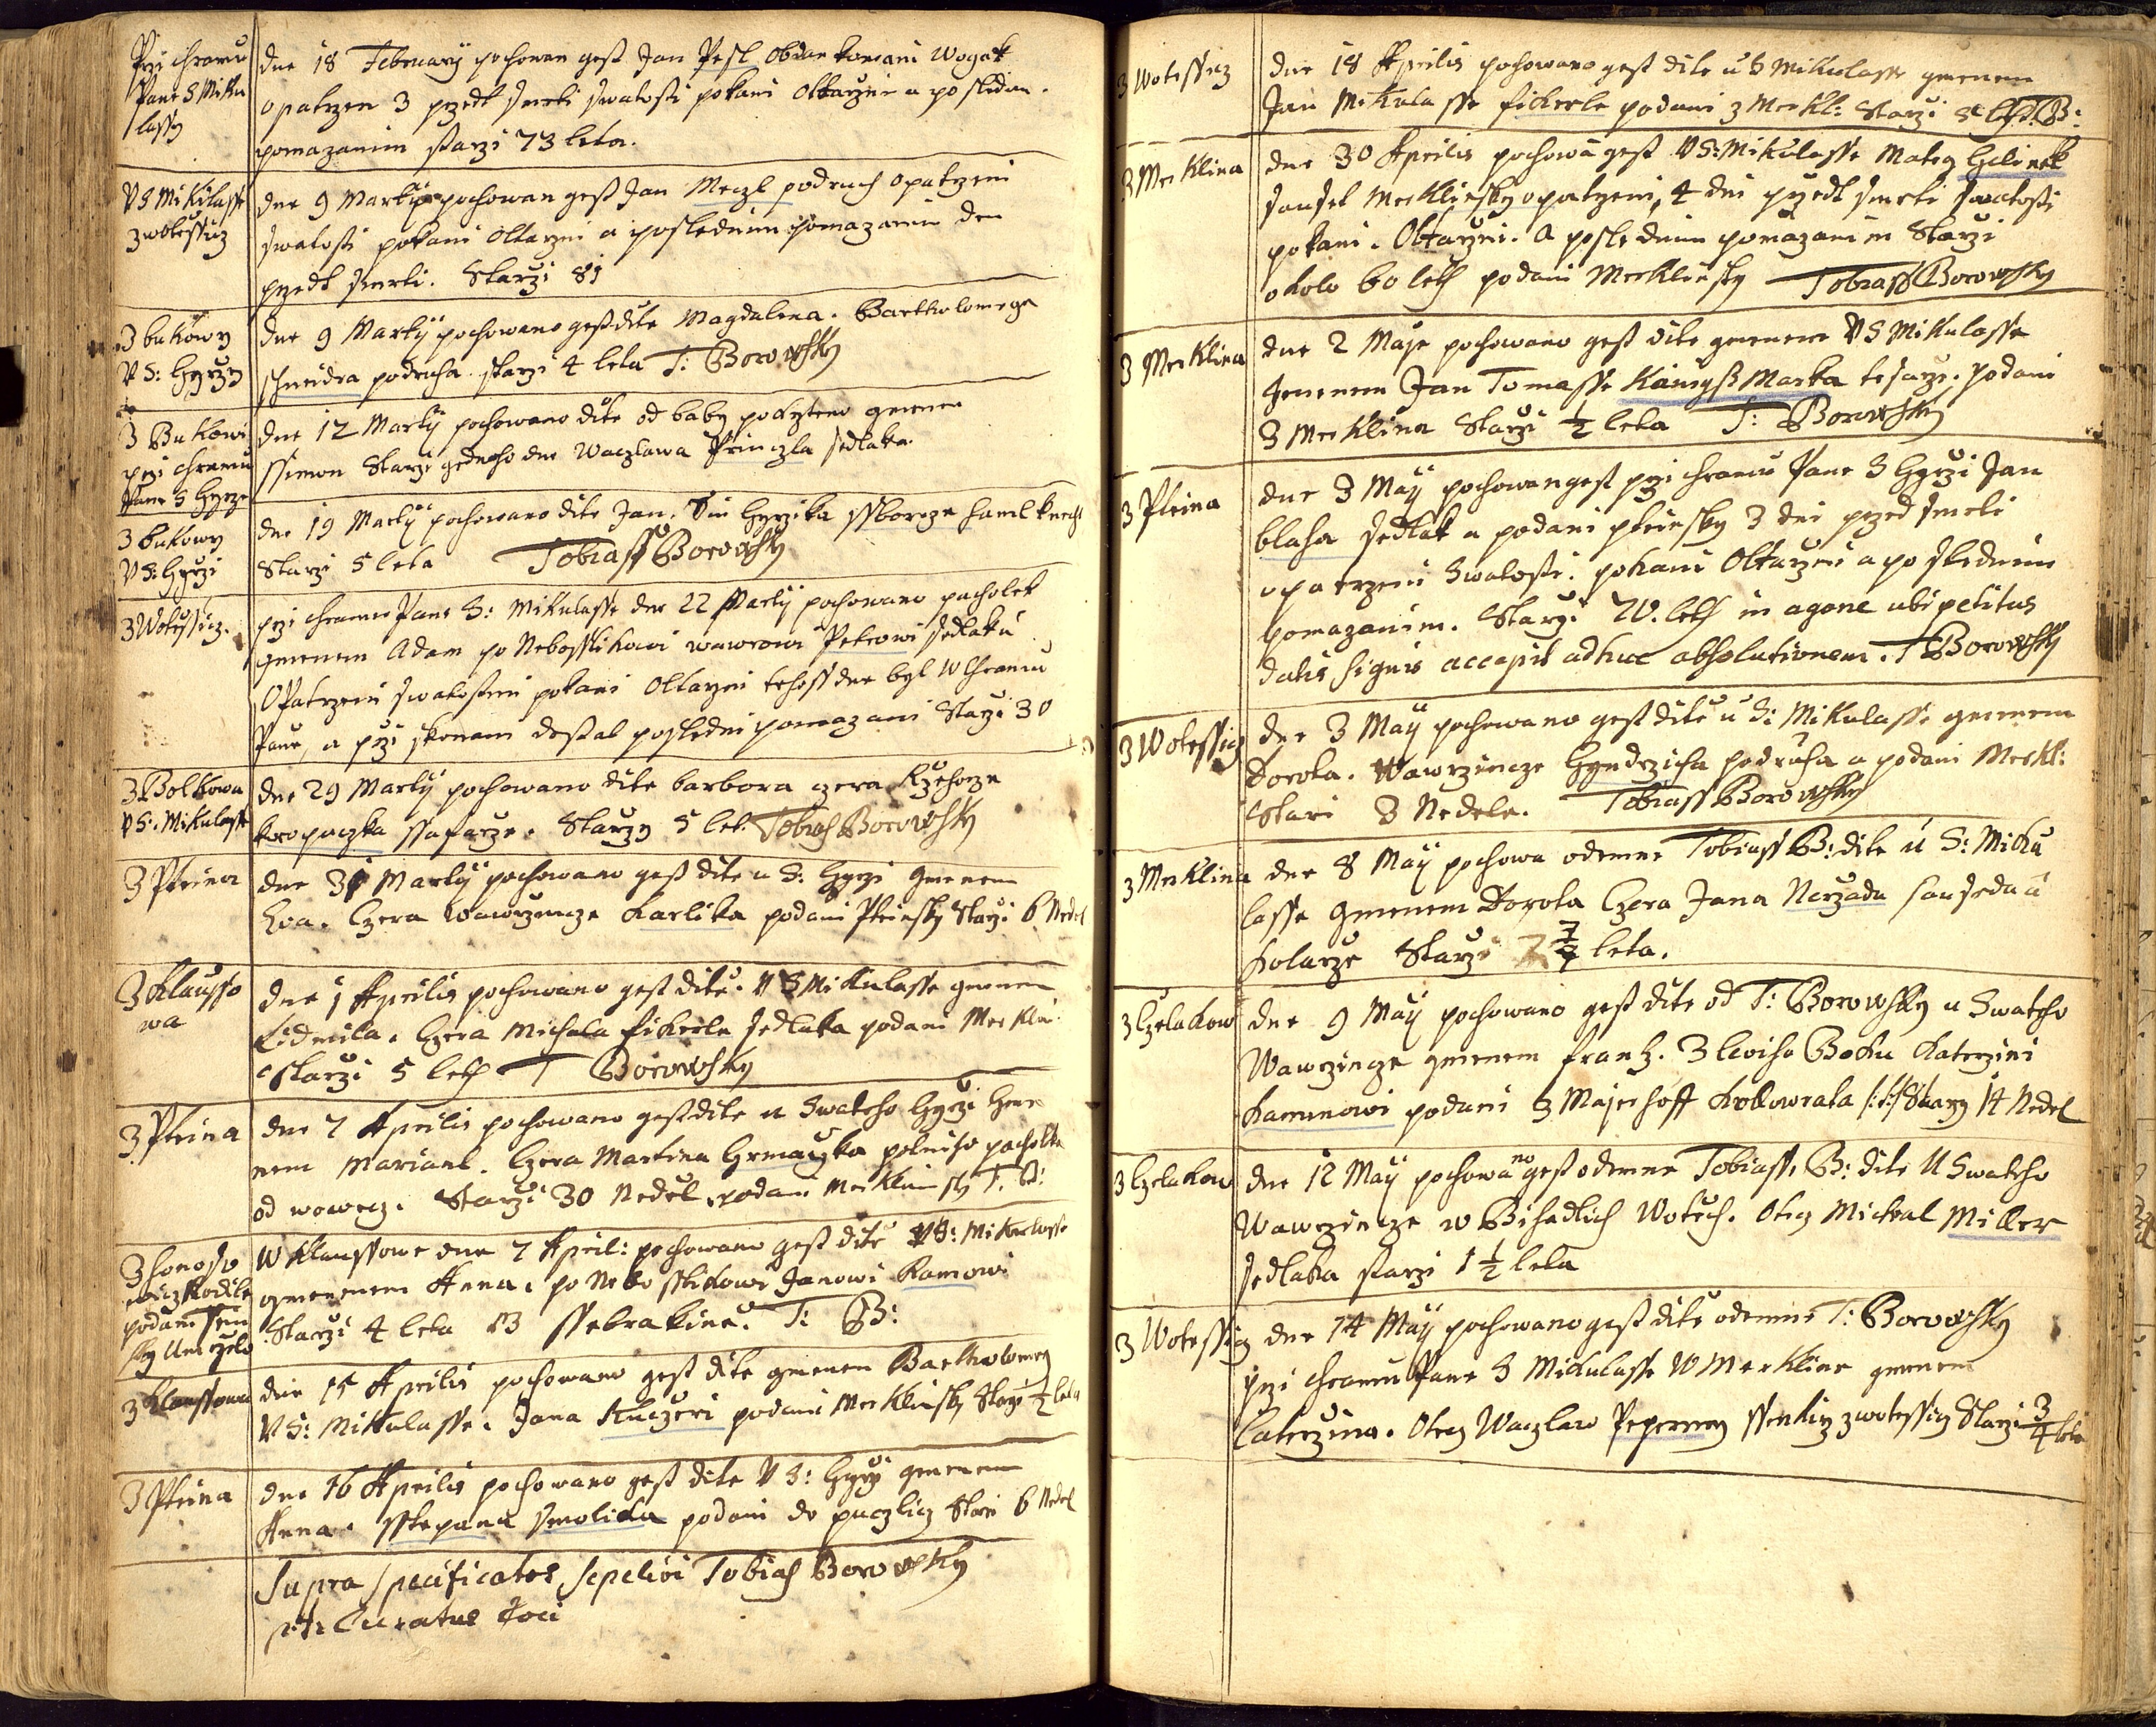 Przi chramu
Pane S Miku
lassy
dne 18 February pochowan gest Jan Pesl Obdankowani Wogak
opatrzen 3 przedt smrti swatosti pokani Oltarzni a poslednim
pomazanim starzi 73 leta.
V S Mikulasse
z wotessicz
dne 9 Marty pochowan gest Jan Meczl podruch opatrzeni
swatosti pokani Oltarzni a poslednim pomazanim den
przedt smrti. Starzi 81
3 bukowy
V S: Hgyrzy
dne 9 Marty pochowano gest dite Magdalena. Bartholomege
schneidra podruha starzi 4 leta T: Borowsky
3 Bukowi
przi chramu
Pane S Hgyrze
dne 12 Marty pochowano dite od baby pokrzteno gmenem
ssimon Starzi gednoho dne Waczlawa Princzla sedlaka
3 bukowy
V S: Hgyrzi
dne 19 Marty pochowano dite Jan. Sin Hgyrzika ssboroze hamlknecht
Starzi 5 leta Tobiass Borowsky
3 Wotessicz.
przi chramu Pane S: Mikulasse dne 22 Marty pochowano pacholek
gmenem Adam po Nebosstikowi wawrowi Petrowi sedlaku
Opatrzeni swatostmi pokani Oltarzni tehoss dne byl W Chramu
Pane, a przi skonani dostal posledni pomazani Starzi 30
3 Bolkowa
V S. Mikulasse
dne 29 Marty pochowano dite barbora czera Rzehorze
kropaczka ssafarze. Starzy 5 let. Tobias Borowsky
3 Pteina
dne 31 Marty pochowano gest dite u S. Hgyrzi gmenem
Eva. Czera Wawrzincze Karlika podani Pteinsky Starzi 6 Nedel
3 Klausso
wa
dne 1 Aprilis pochowano gest dite. V S Mikulasse gmenem
Lidmila. Czera Michala fickerle sedlaka podani Merklin.
Starzi 5 leth T Borowsky
3 Pteina
dne 7 Aprilis pochowano gest dite u Swateho Hgyrzi Gme
nem Mariana. Czera Martina Hrmaczka polniho pacholka
od woweg. Starzi 30 Nedel, podani Merklinsky T. B:
W Klaussowe dne 7 April: pochowano gest dite V S: Mikulasse
gmenem Anna. po Nebosstikowi Janowi Kamowi
Starzi 4 leta 13 ssebrakine. T: B:
3 Klaussowa
dne 15 Aprilis pochowano gest dite gmenem Bartholomeg
V S: Mikulasse. Jana Kuczeri podani Merklinsky Starzi ½ leta
3 Pteina
dne 16 Aprilis pochowano gest dite V S: Hgyrzi gmenem
Anna. sstepana smolika podani do puczlicz Stari 6 Nedel
Supra specificatos sepelivi Tobias Borowsky
p:t: Curatus Loci
3 Wotessicz
dne 18 Aprilis pochowano gest dite u S Mikulasse gmenem
Jan Mikulasse fickerle podani z Merkl: Starzi T. B:
3 Merklina
dne 30 Aprilis pochowa gest V S: Mikulasse Mateg Hglinek
saused Merklinsky opatrzeni, 4 dni przedt smrti swatosti
pokani. Oltarzni. A poslednim pomazanim Starzi
okolo 60 leth podani Merklinsky Tobiass Borowsky
3 Merklina
dne 2 Maje pochowano gest dite gmenem V S Mikulasse
Jmenem Jan Tomasse Kamgss Marka tesarze. podani
3 Merklina Starzi ½ leta T: Borowsky
3 Pteina
dne 3 May pochowan gest przi chramu Pane S Hgyrzi Jan
blaha sedlak a podani pteinsky 3 dni przed smrti
opatrzeni Swatosti. pokani Oltarzni a poslednim
pomazanim. Starzi 70. leth in agone ubi petitus
datis signis accepit adhuc absolutionem. T Borowsky
3 Wotessicz
dne 3 May pochowano gest dite u S: Mikulasse gmenem
Dorota. Wawrzincze Hgyndrzicha podruha a podani Merkl:
Stari 3 Nedele. Tobiass Borowsky
3 Merklina
dne 8 May pochowa odemne Tobiass B: dite u S: Miku
lasse gmenem Dorota Czera Jana Nerzada sauseda a
kolarze Starzi leta.
3 Czelakow
dne 9 May pochowano gest dite od T: Borowsky u Swateho
Wawrzincze gmenem frantz. 3 lewiho Boku Katerzini
Kaminowi podani 3 Majerhoff Kolowrata Starzy 14 Nedel
3 Czelakow
dne 12 May pochowano gest odemne Tobiass. B: dite U Swateho
Wawrzincze w Bihadlich Wotech. Otecz Michal Miller
sedlaka starzi 1½ leta
3 Wotessicz
dne 14 May pochowano gest dite odemne T: Borowsky
przi chramu Pane S Mikulasse W Merkline gmenem
Caterzina. Otecz Waczlaw Peperney ssenkirz z wotessicz Starzi ¾ leta